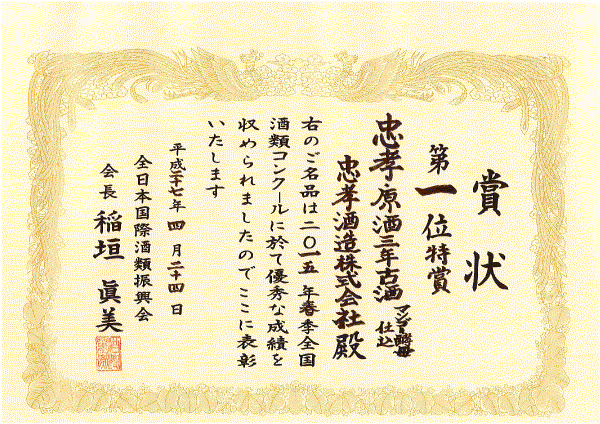 賞状
第一位特賞
忠孝原酒三年古酒 マンゴー酵母仕込
忠孝酒造株式会社殿
右のご名品は二〇一五年春季全国
酒類コンクールに於て優秀な成績を
収められましたのでここに表彰
いたします
平成二十七年四月二十四日
全日本国際酒類振興会
会長 稲垣眞美